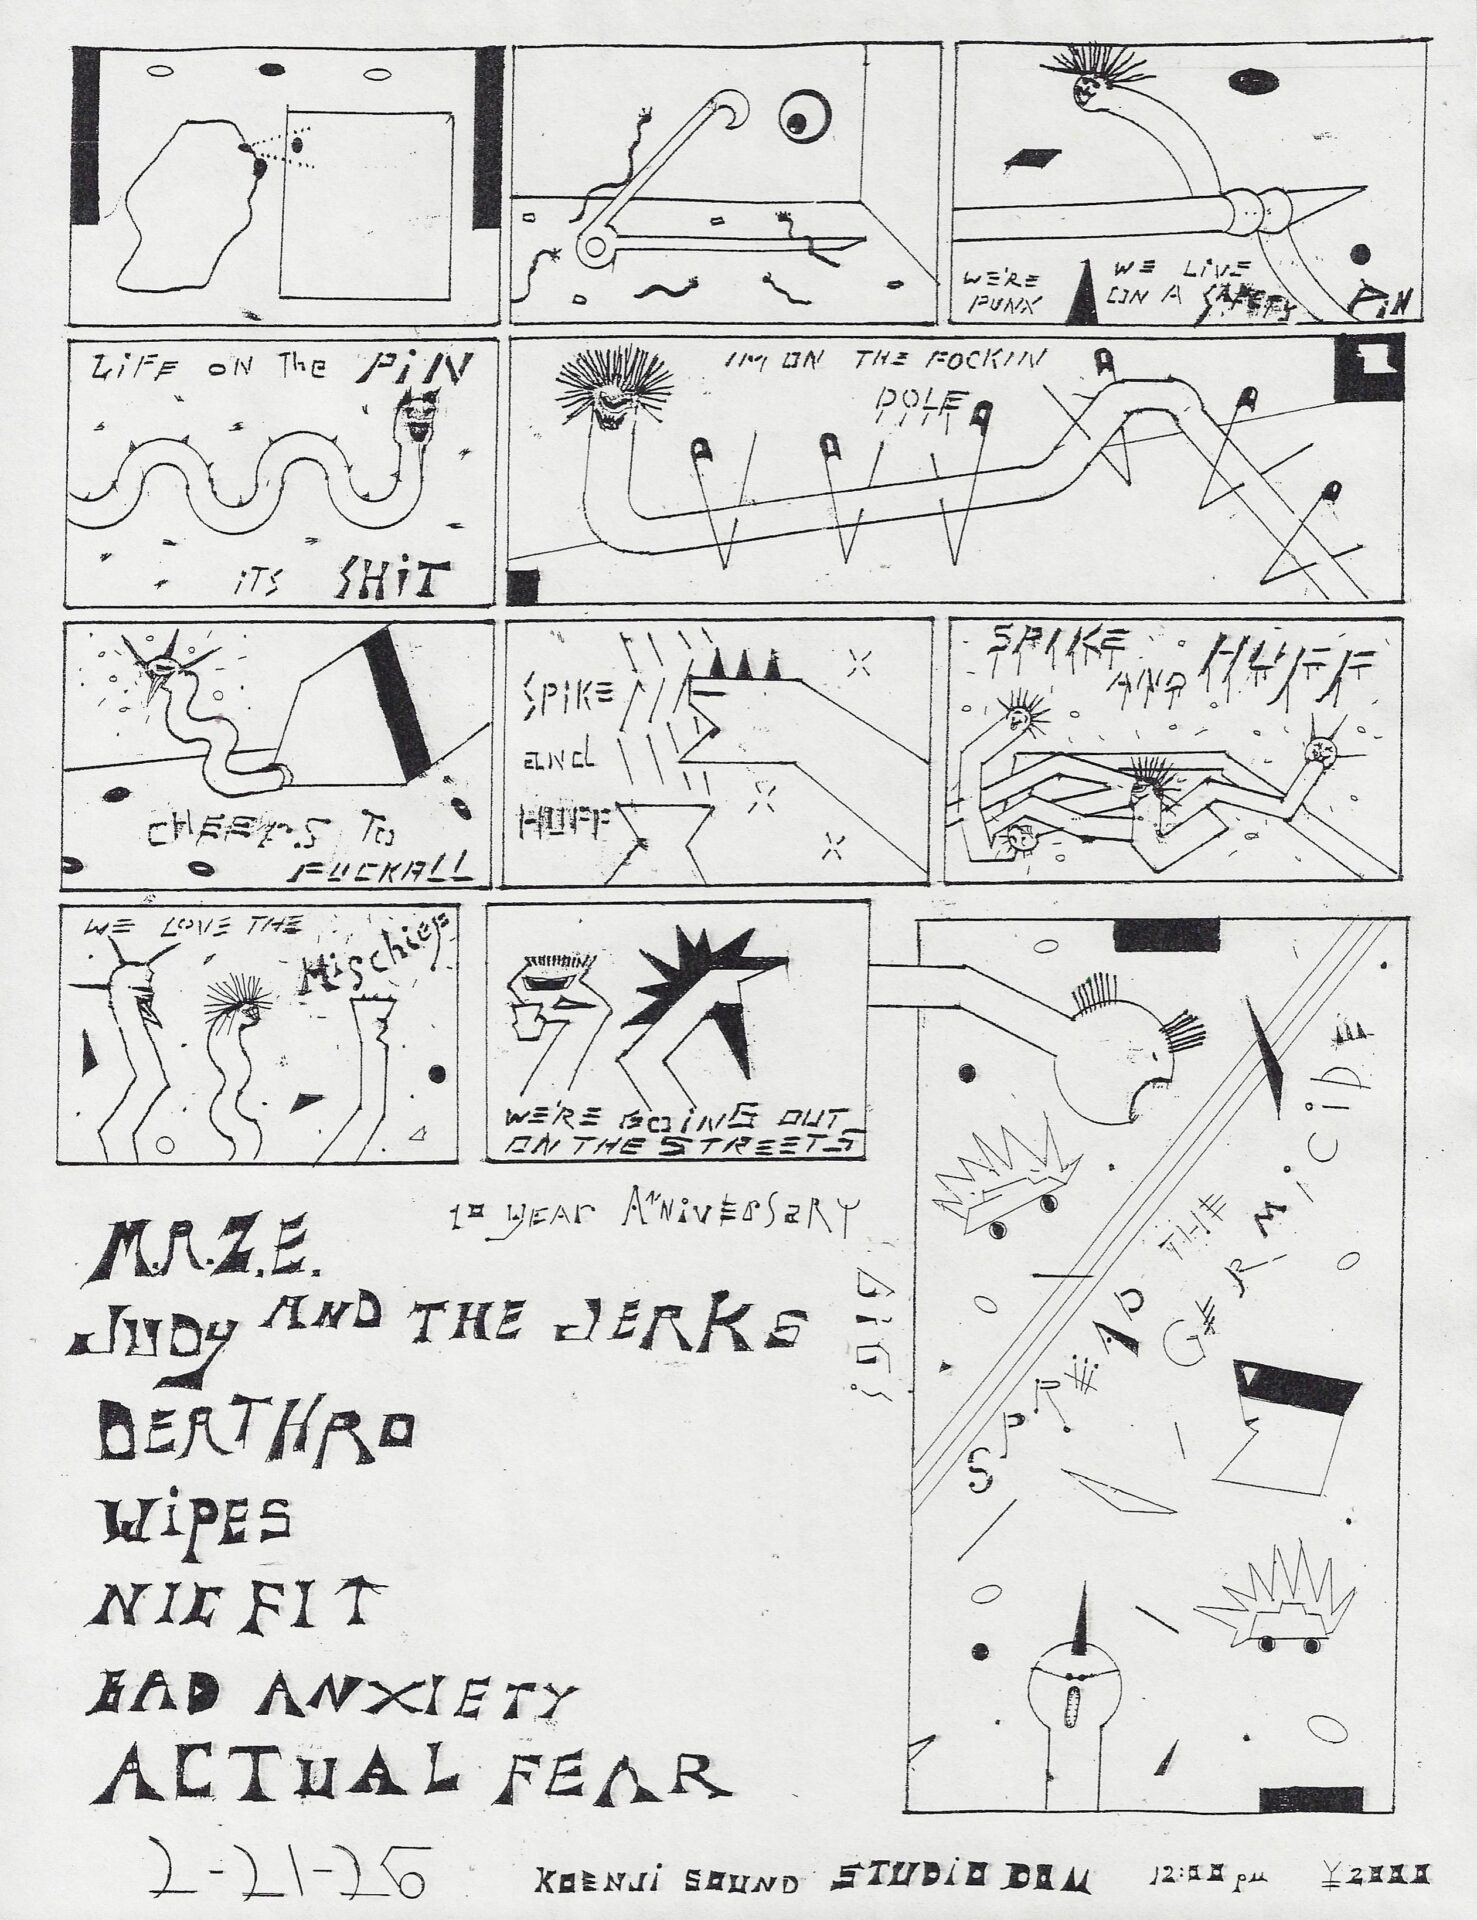 WE'RE PUNX
WE LIVE ON A SAFETY PIN
LIFE ON THE PIN
ITS SHIT
IM ON THE FOCKIN POLE
CHEERS TO FUCKALL
SPIKE and HUFF
SPIKE AND HUFF
WE LOVE THE Mischiefs
WE'RE GOING OUT
ON THE STREETS
SPREAD THE GERMICIDE
1º year Anniversary GIG!
M.A.Z.E.
JUDY AND THE JERKS
DEATHRO
WiPES
NIC FIT
BAD ANXIETY
ACTUAL FEAR
KOENJI SOUND STUDIO DOM 12:00 pm ¥2000